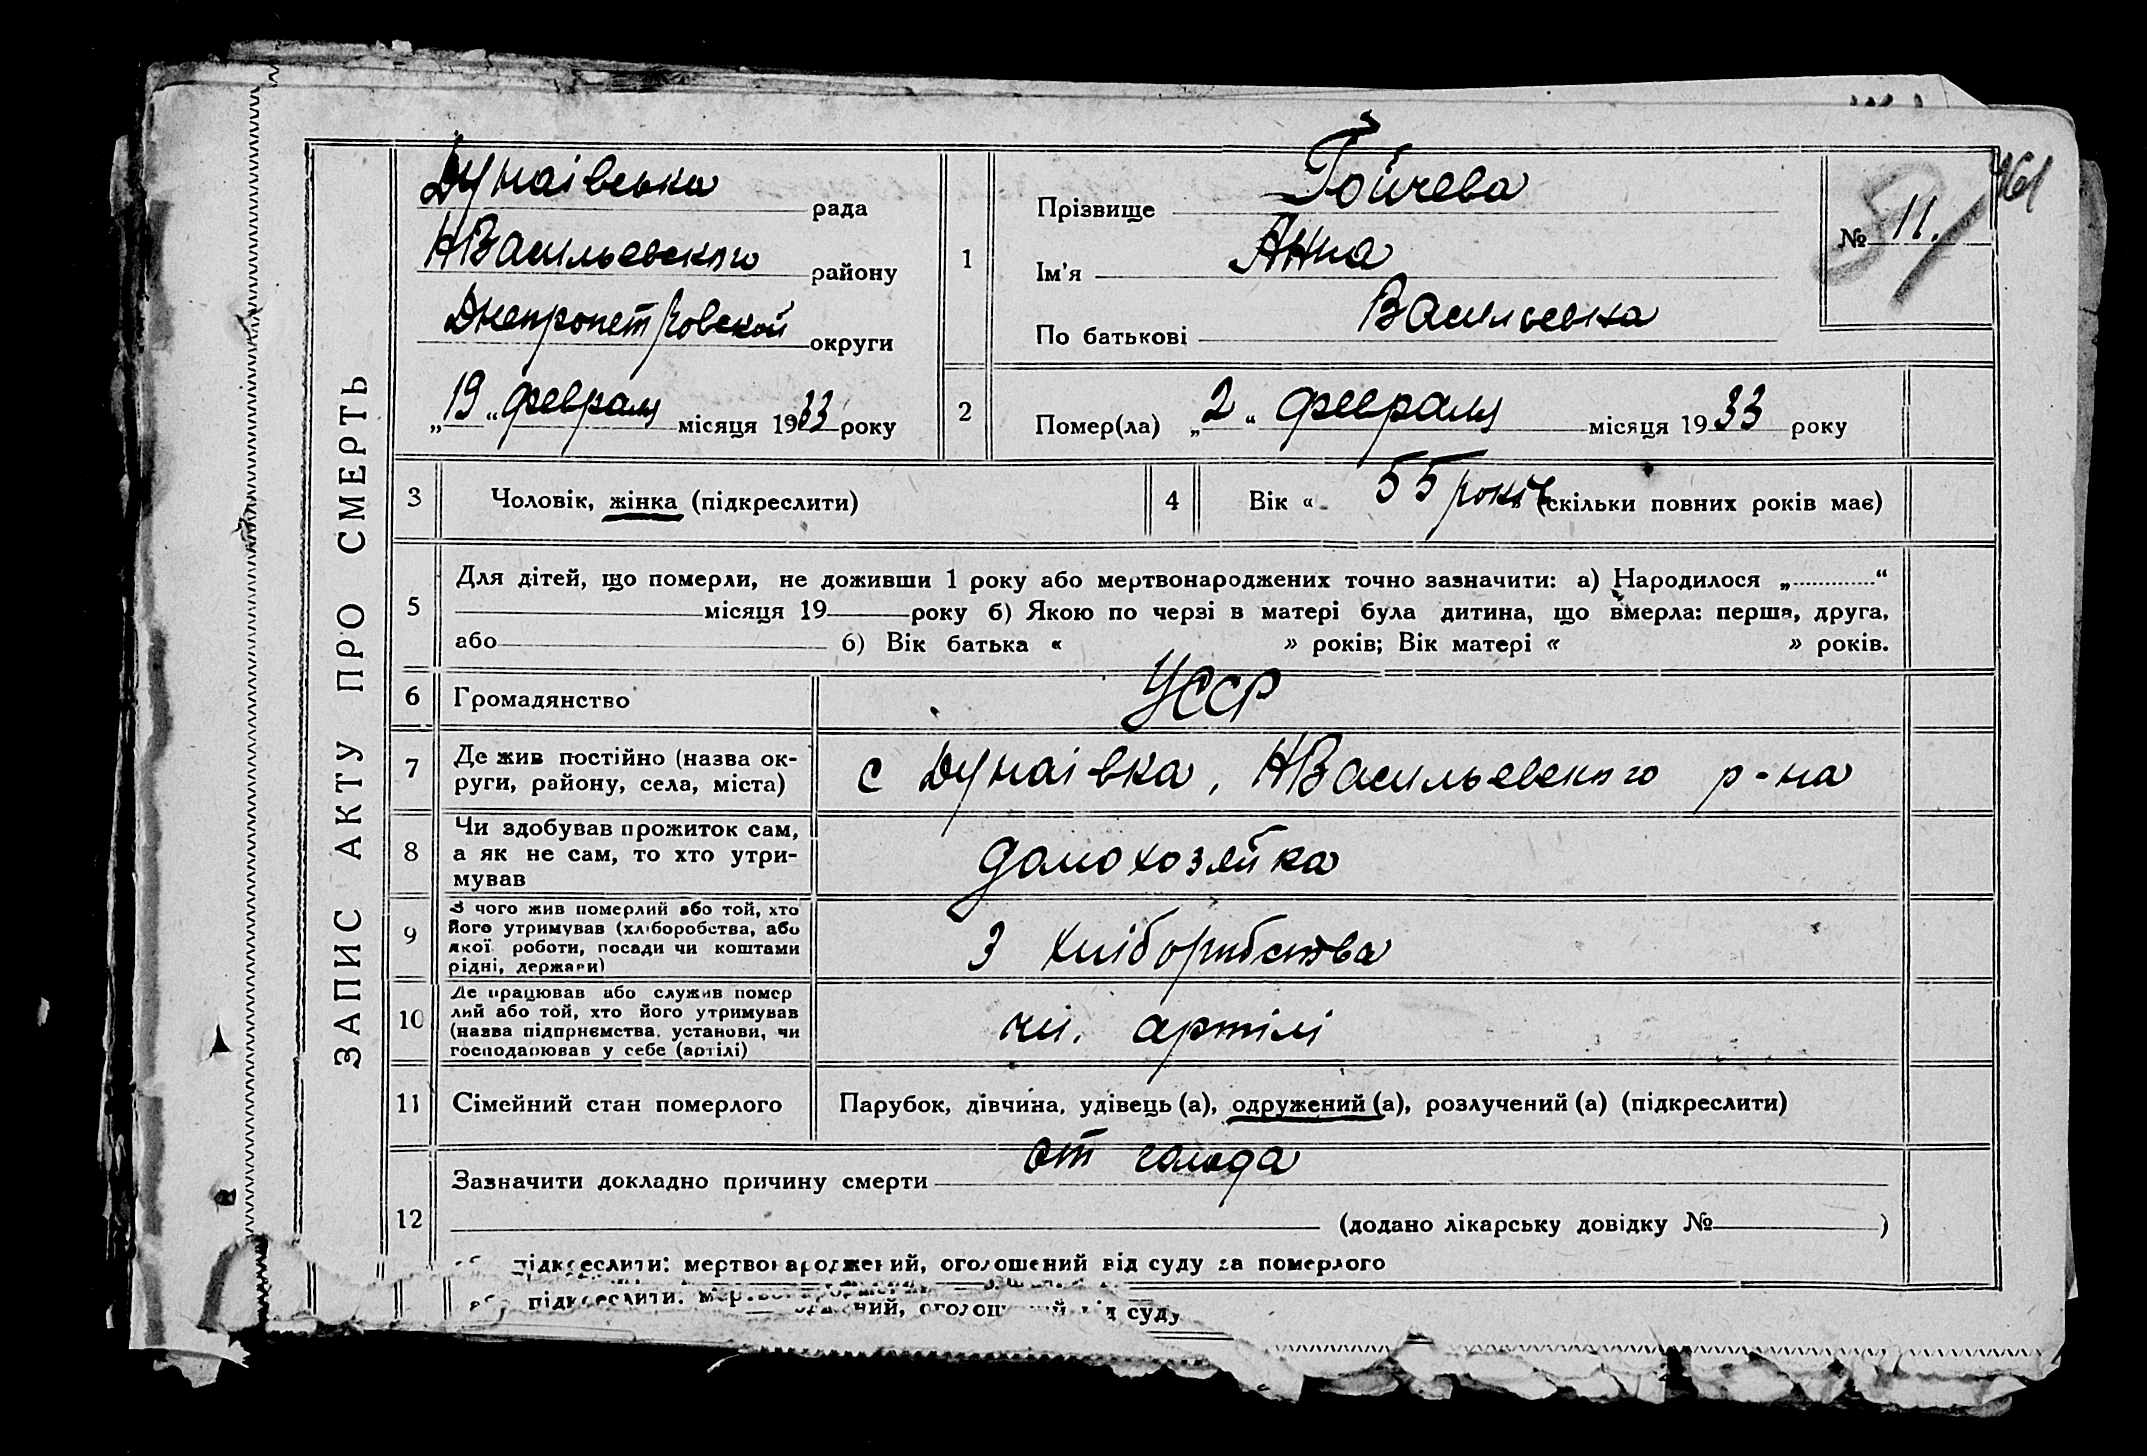 ЗАПИС АКТУ ПРО СМЕРТЬ
Дунаівська рада
НВасильевского району
Днепропетровской округи
„19“ февраля місяця 1933 року
1
Прізвище Гойчева
Ім'я Анна
По батькові Васильевна
№ 11.
161
2
Помер(ла) „2“ февраля місяця 1933 року
3
Чоловік, жінка (підкреслити)
4
Вік « 55 років » (скільки повних років має)
5
Для дітей, що померли, не доживши 1 року або мертвонароджених точно зазначити: а) Народилося „ “
місяця 19 року б) Якою по черзі в матері була дитина, що вмерла: перша, друга,
або б) Вік батька « » років; Вік матері « » років.
6
Громадянство УССР
7
Де жив постійно (назва ок-
руги, району, села, міста)
с Дунаівка, НВасильевского р-на
8
Чи здобував прожиток сам,
а як не сам, то хто утри-
мував
домохозяйка
9
З чого жив померлий або той, хто
його утримував (хліборобства, або
якої роботи, посади чи коштами
рідні, держави)
З хліборобства
10
Де працював або служив помер
лий або той, хто його утримував
(назва підприємства, установи, чи
господарював у себе (артілі)
чл. артілі
11
Сімейний стан померлого
Парубок, дівчина, удівець (а), одружений (а), розлучений (а) (підкреслити)
12
Зазначити докладно причину смерти от голода
(додано лікарську довідку № )
підкреслити: мертвонароджений, оголошений від суду за померлого
підкреслити: суду